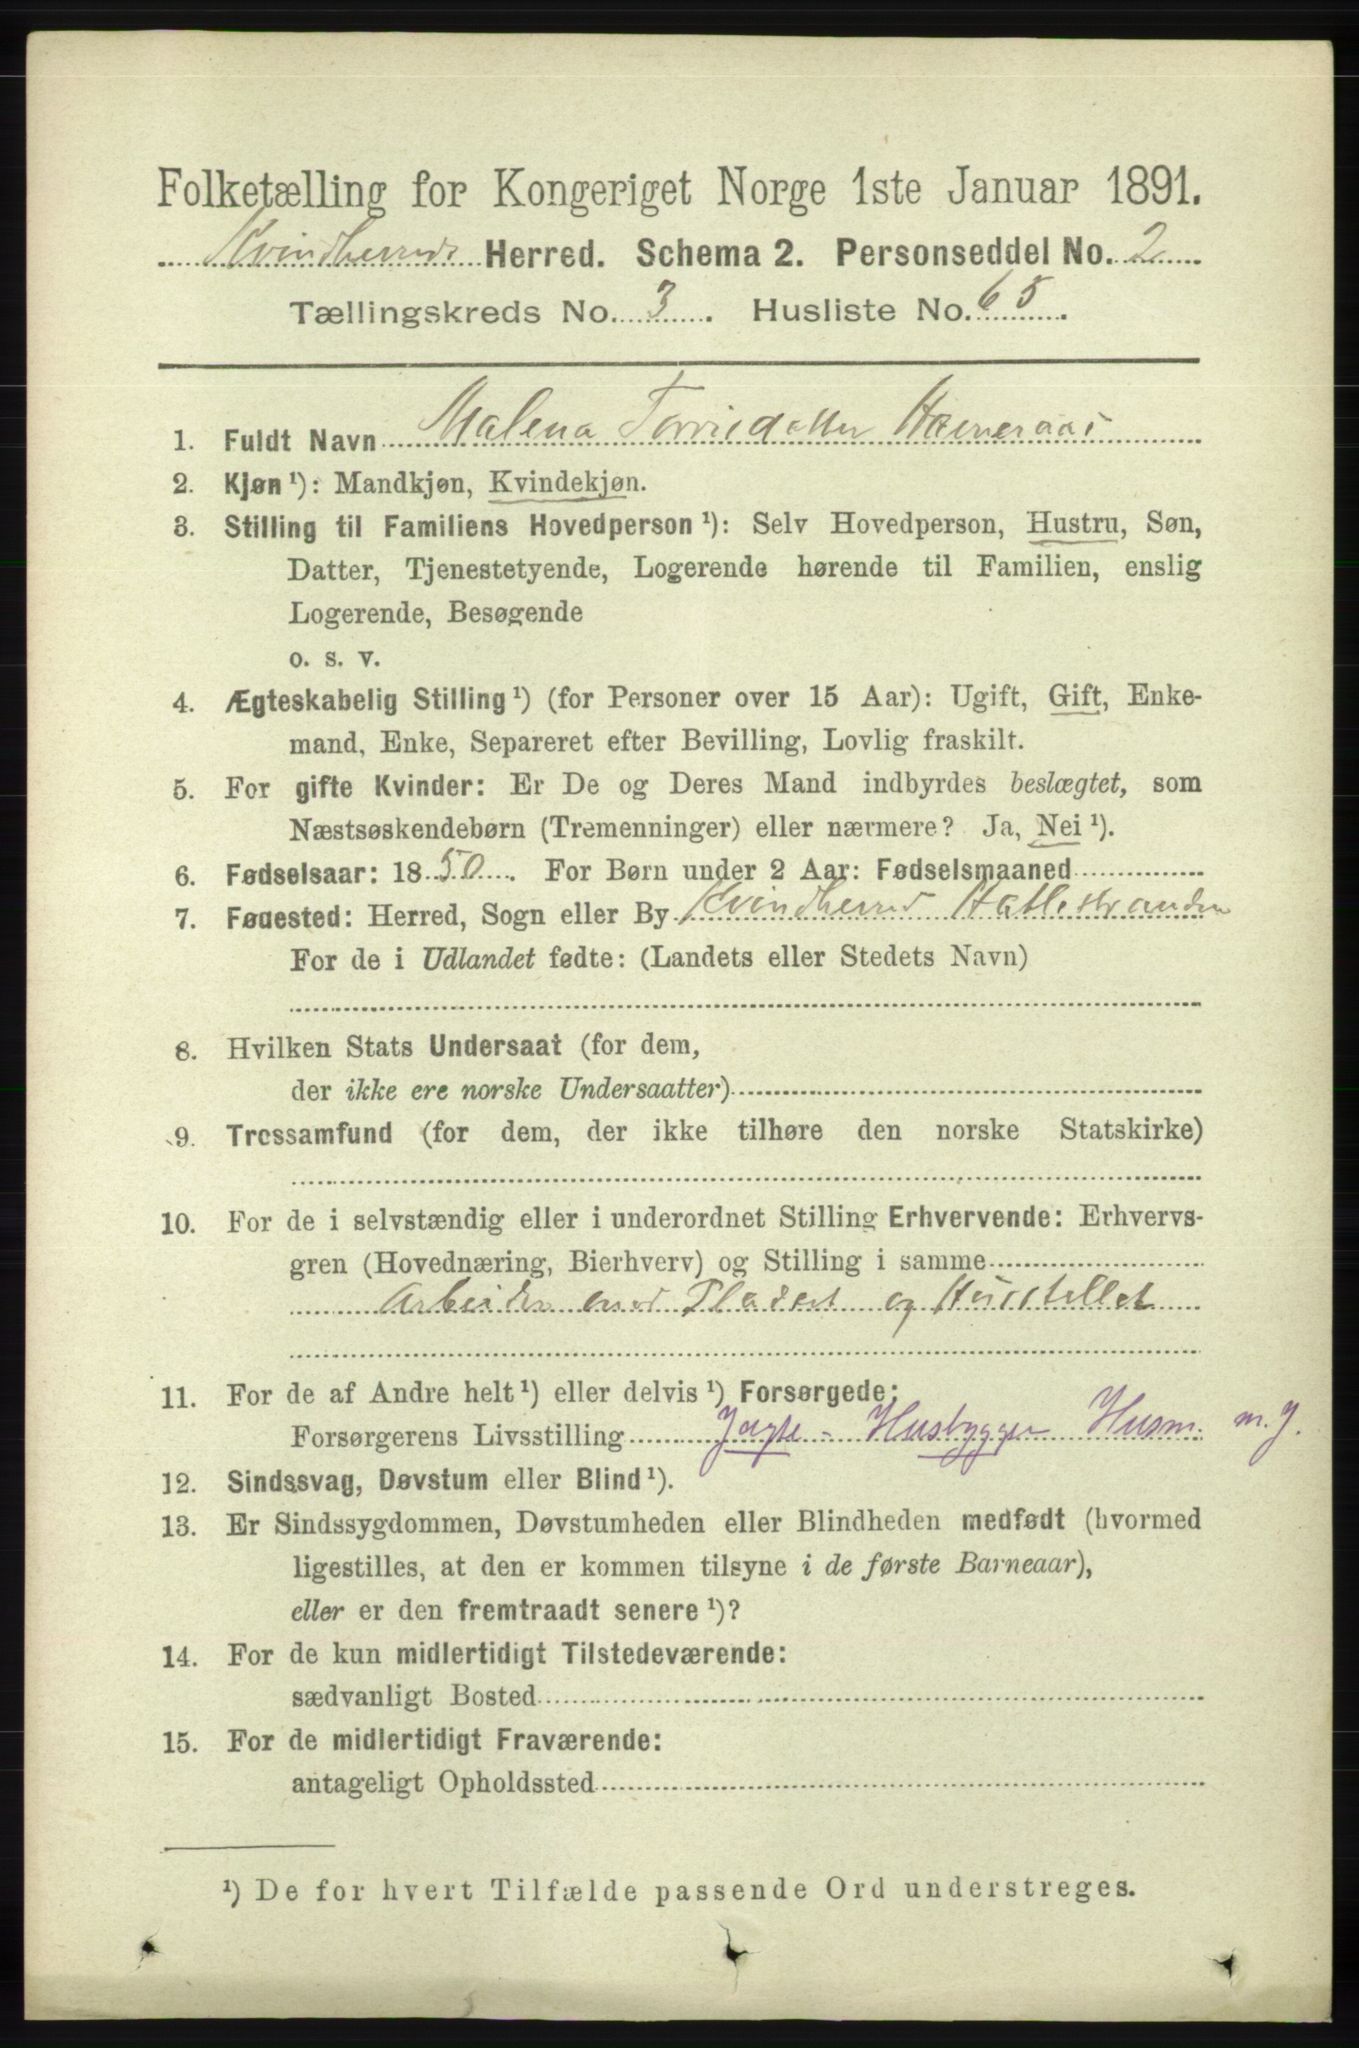 Folketælling for Kongeriget Norge 1ste Januar 1891.
Kvindherreds Herred. Schema 2. Personseddel No. 2
Tællingskreds No. 3. Husliste No. 65.
1. Fuldt Navn Malena
2. Kjøn ¹): Mandkjøn, Kvindekjøn.
3. Stilling til Familiens Hovedperson ¹): Selv Hovedperson, Hustru, Søn,
Datter, Tjenestetyende, Logerende hørende til Familien, enslig
Logerende, Besøgende
o. s. v.
4. Ægteskabelig Stilling ¹) (for Personer over 15 Aar): Ugift, Gift, Enke-
mand, Enke, Separeret efter Bevilling, Lovlig fraskilt.
5. For gifte Kvinder: Er De og Deres Mand indbyrdes beslægtet, som
Næstsøskendebørn (Tremenninger) eller nærmere? Ja, Nei ¹).
6. Fødselsaar: 1850. For Børn under 2 Aar: Fødselsmaaned
7. Føuested: Herred, Sogn eller By Kvindherred Hatlestranden
For de i Udlandet fødte: (Landets eller Stedets Navn)
8. Hvilken Stats Undersaat (for dem,
der ikke ere norske Undersaatter)
9. Trossamfund (for dem, der ikke tilhøre den norske Statskirke)
10. For de i selvstændig eller i underordnet Stilling Erhvervende: Erhvervs-
gren (Hovednæring, Bierhverv) og Stilling i samme
Arbeider med og Husstellet
11. For de af Andre helt ¹) eller delvis ¹) Forsørgede:
Forsørgerens Livsstilling Jagte- Husbygger Husm. m. J.
12. Sindssvag, Døvstum eller Blind ¹).
13. Er Sindssygdommen, Døvstumheden eller Blindheden medfødt (hvormed
ligestilles, at den er kommen tilsyne i de første Barneaar),
eller er den fremtraadt senere ¹)?
14. For de kun midlertidigt Tilstedeværende:
sædvanligt Bosted
15. For de midlertidigt Fraværende:
antageligt Opholdssted
¹) De for hvert Tilfælde passende Ord understreges.